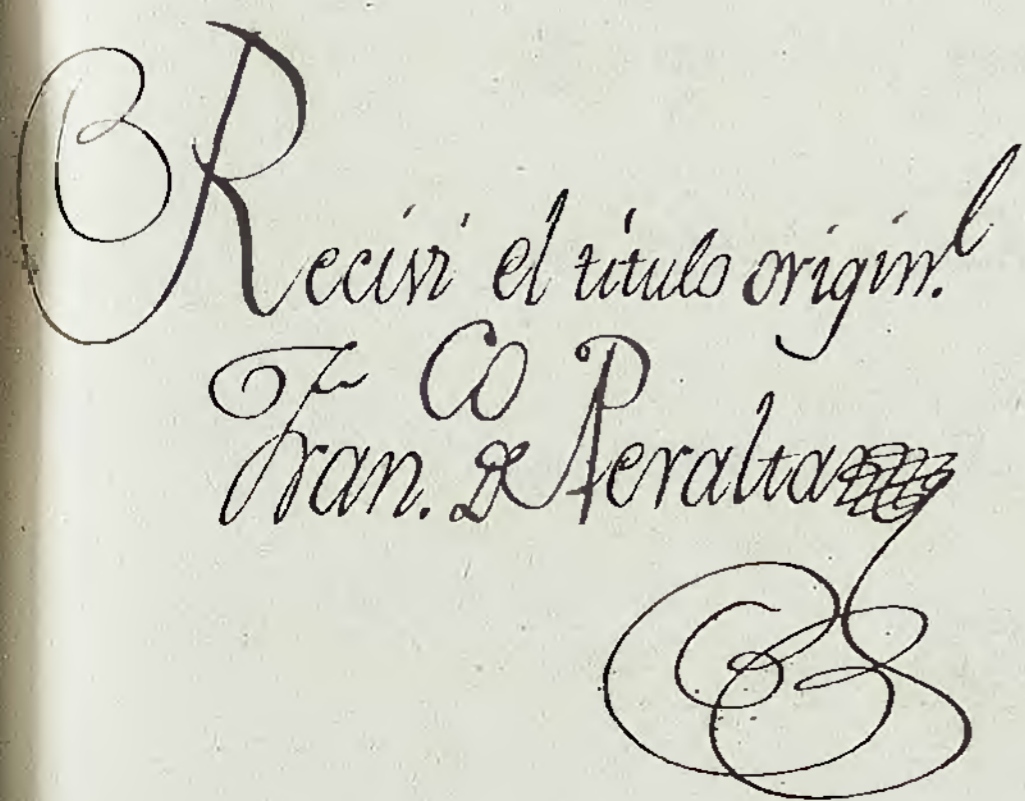 Recivi el titulo origin.l
Fran.co de Peralta